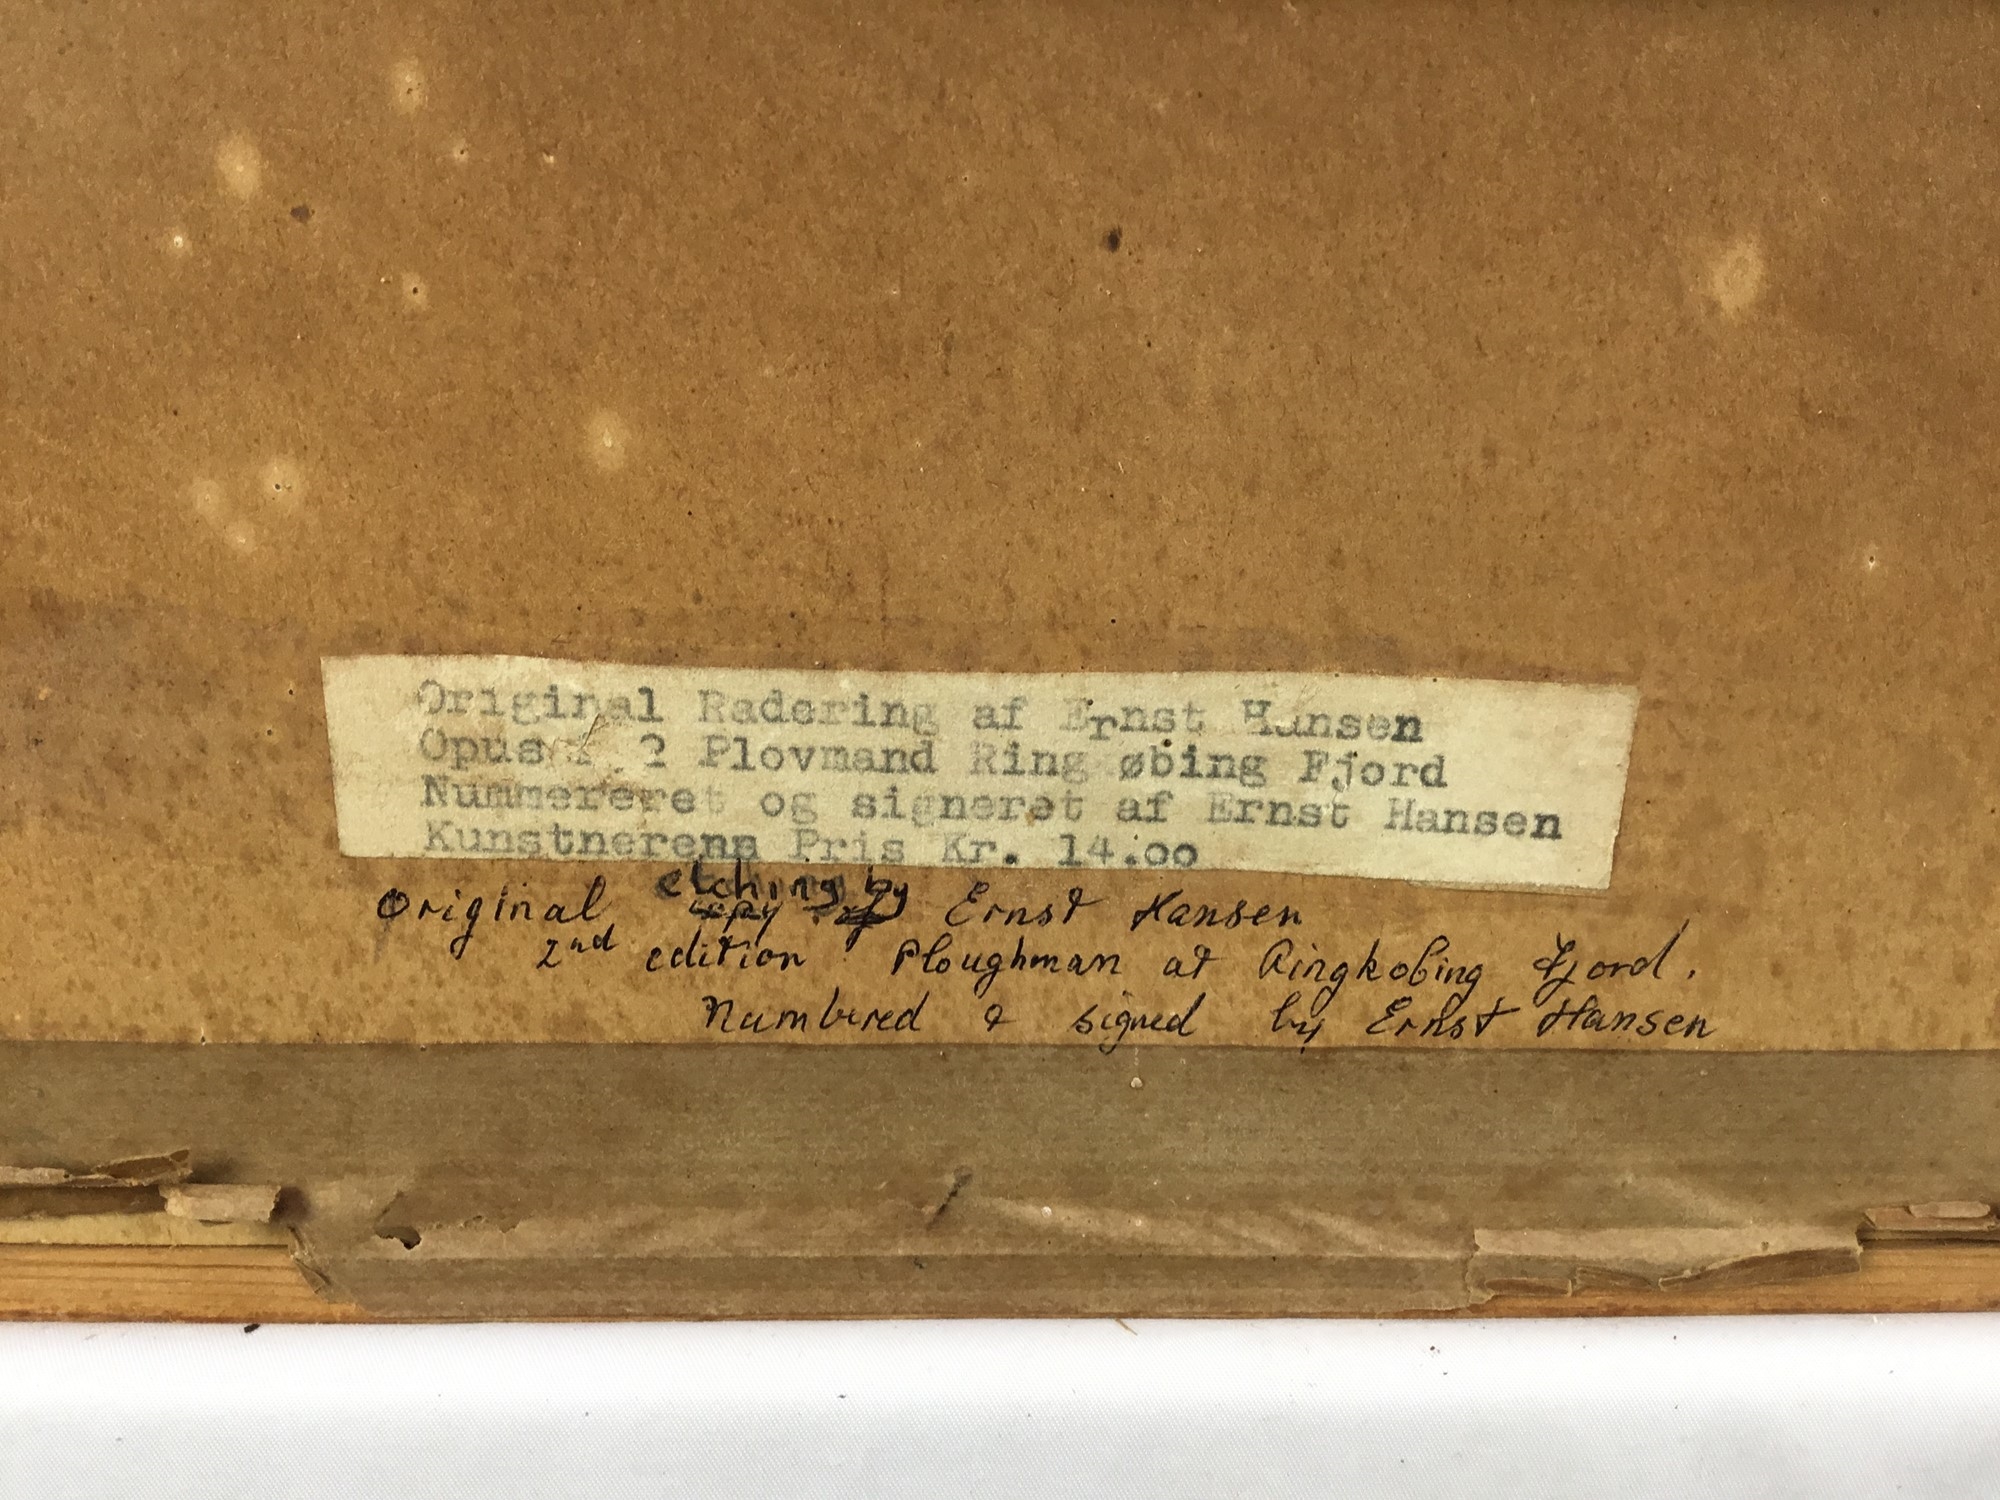 Original Radering af Ernst Hansen
Opus 2 Plovmand Ring øbing Fjord
Nummereret og signeret af Ernst Hansen
Kunstnerens Pris Kr. 14.oo
etching by
Original copy of Ernst Hansen
2nd edition Ploughman at Ringkobing Fjord.
Numbered & signed by Ernst Hansen